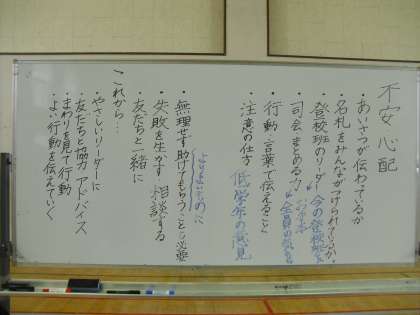 不安 心配
・あいさつが伝わっているか
・名札をみんながつけられているか
・登校班のリーダー
今の登校班
・司会 まとめる力
全員の気もち
・行動 言葉で伝えること
・注意の仕方
低学年の意見
・無理せず助けてもらうことも必要
・失敗を生かす 相談する
・友だちと一緒に
これから…
・やさしいリーダーに
・友だちと協力 アドバイス
・まわりを見て行動
・よい行動を伝えていく